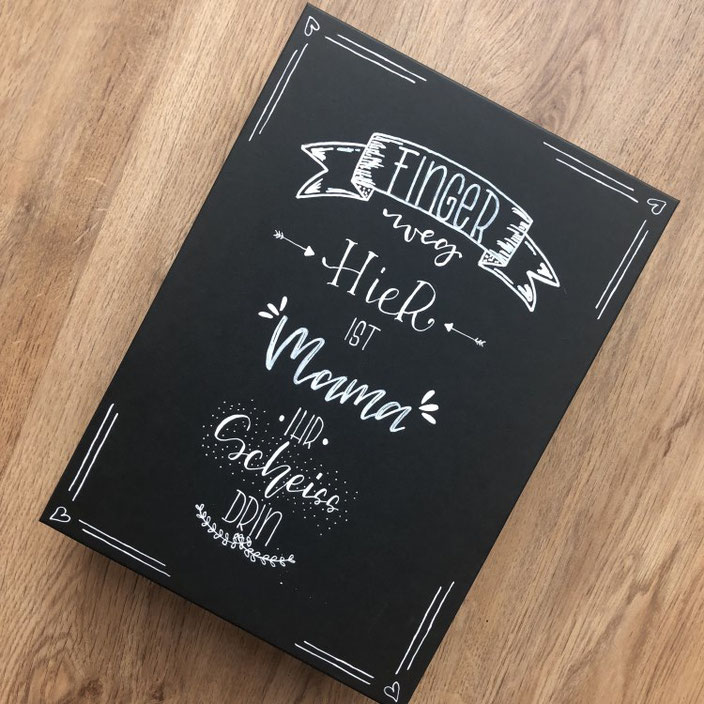 FINGER
weg
HieR
IST
Mama
IHR
Scheiss
DRIN